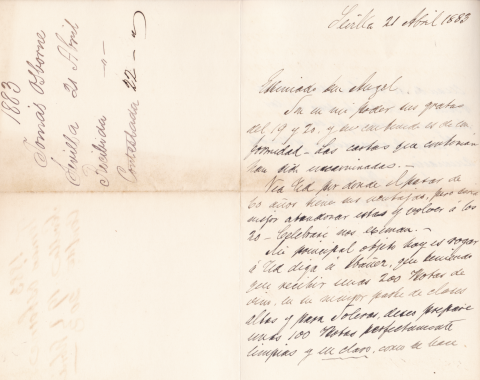 1883
Tomás Osborne
Sevilla 21 Abril
Recibida -"-
Contestada 22 -"-
Sevilla 21 Abril 1883
Estimado Don Angel.
En mi poder sus gratas
del 19 y 20. y su contenido es de con
formidad - Las cartas que contenian
han sido encaminadas. -
Vea Ud por donde el pasar de
60 años tiene sus ventajas, pero era
mejor abandonar estas y volver á los
20 -
Mi principal objeto hoy es rogar
á Ud diga á Ibañez, que teniendo
que recibir unas 200 Botas de
vino, en su mayor parte de clases
altas y para Soleras, deseo prepare
unas 100 Botas perfectamente
limpias y en claro, como se han